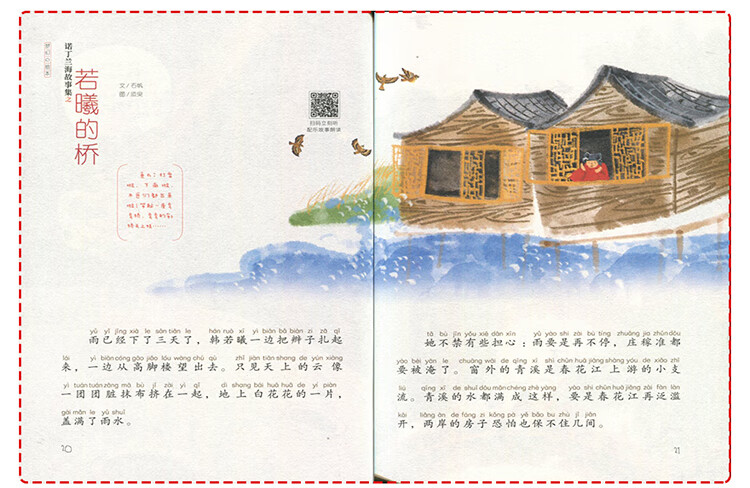 梦幻小绘本
诺丁兰海故事集之
若曦的桥
扫码立刻听
配乐故事朗读
yǔ yǐ jīng xià le sān tiān le hán ruò xī yì biān bǎ biàn zi zā qǐ
雨已经下了三天了，韩若曦一边把辫子扎起
lái yì biān cóng gāo jiǎo lóu wàng chū qù zhǐ jiàn tiān shang de yún xiàng
来，一边从高脚楼望出去。只见天上的云像
yì tuán tuán zāng mā bù jǐ zài yì qǐ dì shang bái huā huā de yí piàn
一团团脏抹布挤在一起，地上白花花的一片，
gài mǎn le yǔ shuǐ
盖满了雨水。
10
tā bù jīn yǒu xiē dān xīn yǔ yào shi zài bù tíng zhuāng jia zhǔn dōu
她不禁有些担心：雨要是再不停，庄稼准都
yào bèi yān le chuāng wài de qīng xī shì chūn huā jiāng shàng yóu de xiǎo zhī
要被淹了。窗外的青溪是春花江上游的小支
liú qīng xī de shuǐ dōu mǎn chéng zhè yàng yào shi chūn huā jiāng zài fàn làn
流。青溪的水都满成这样，要是春花江再泛滥
kāi liǎng àn de fáng zi kǒng pà yě bǎo bu zhù jǐ jiān
开，两岸的房子恐怕也保不住几间。
11